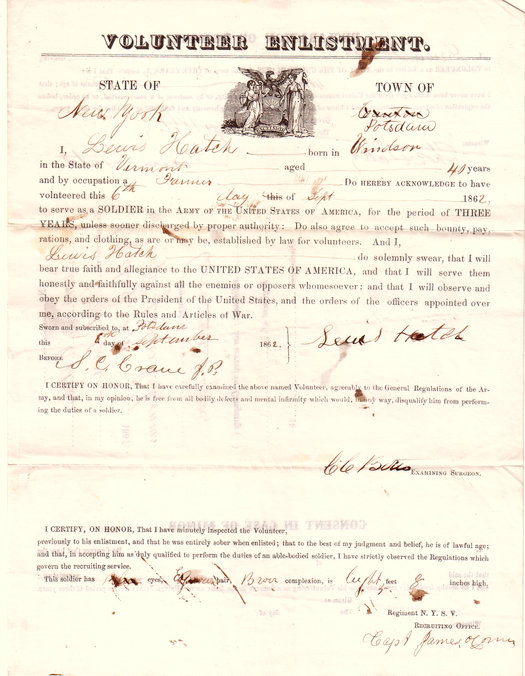 VOLUNTEER ENLISTMENT.
STATE OF
TOWN OF
New York
Canton
Potsdam
I, Lewis Hatch born in Windsor
in the State of Vermont aged 40 years
and by occupation a Farmer Do HEREBY ACKNOWLEDGE to have
volunteered this 6th day this of Sept 1862,
to serve as a SOLDIER in the ARMY OF THE UNITED STATES OF AMERICA, for the period of THREE
YEARS, unless sooner discharged by proper authority: Do also agree to accept such bounty, pay,
rations, and clothing, as are or may be, established by law for volunteers. And I,
Lewis Hatch do solemnly swear, that I will
bear true faith and allegiance to the UNITED STATES OF AMERICA, and that I will serve them
honestly and faithfully against all the enemies or opposers whomsoever; and that I will observe and
obey the orders of the President of the United States, and the orders of the officers appointed over
me, according to the Rules and Articles of War.
Sworn and subscribed to, at Potsdam
this day of September 1862, } Lewis Hatch
BEFORE S. C. Crane J.P.
I CERTIFY ON HONOR, That I have carefully examined the above named Volunteer, agreeably to the General Regulations of the Ar-
my, and that, in my opinion, he is free from all bodily defects and mental infirmity which would, in any way, disqualify him from perform-
ing the duties of a soldier.
EXAMINING SURGEON.
I CERTIFY, ON HONOR, That I have minutely inspected the Volunteer,
previously to his enlistment, and that he was entirely sober when enlisted; that to the best of my judgment and belief, he is of lawful age;
and that, in accepting him as duly qualified to perform the duties of an able-bodied soldier, I have strictly observed the Regulations which
govern the recruiting service.
This soldier has eyes, hair, complexion, is feet 8 inches high.
Regiment N. Y. S. V.
RECRUITING OFFICE.
Capt James